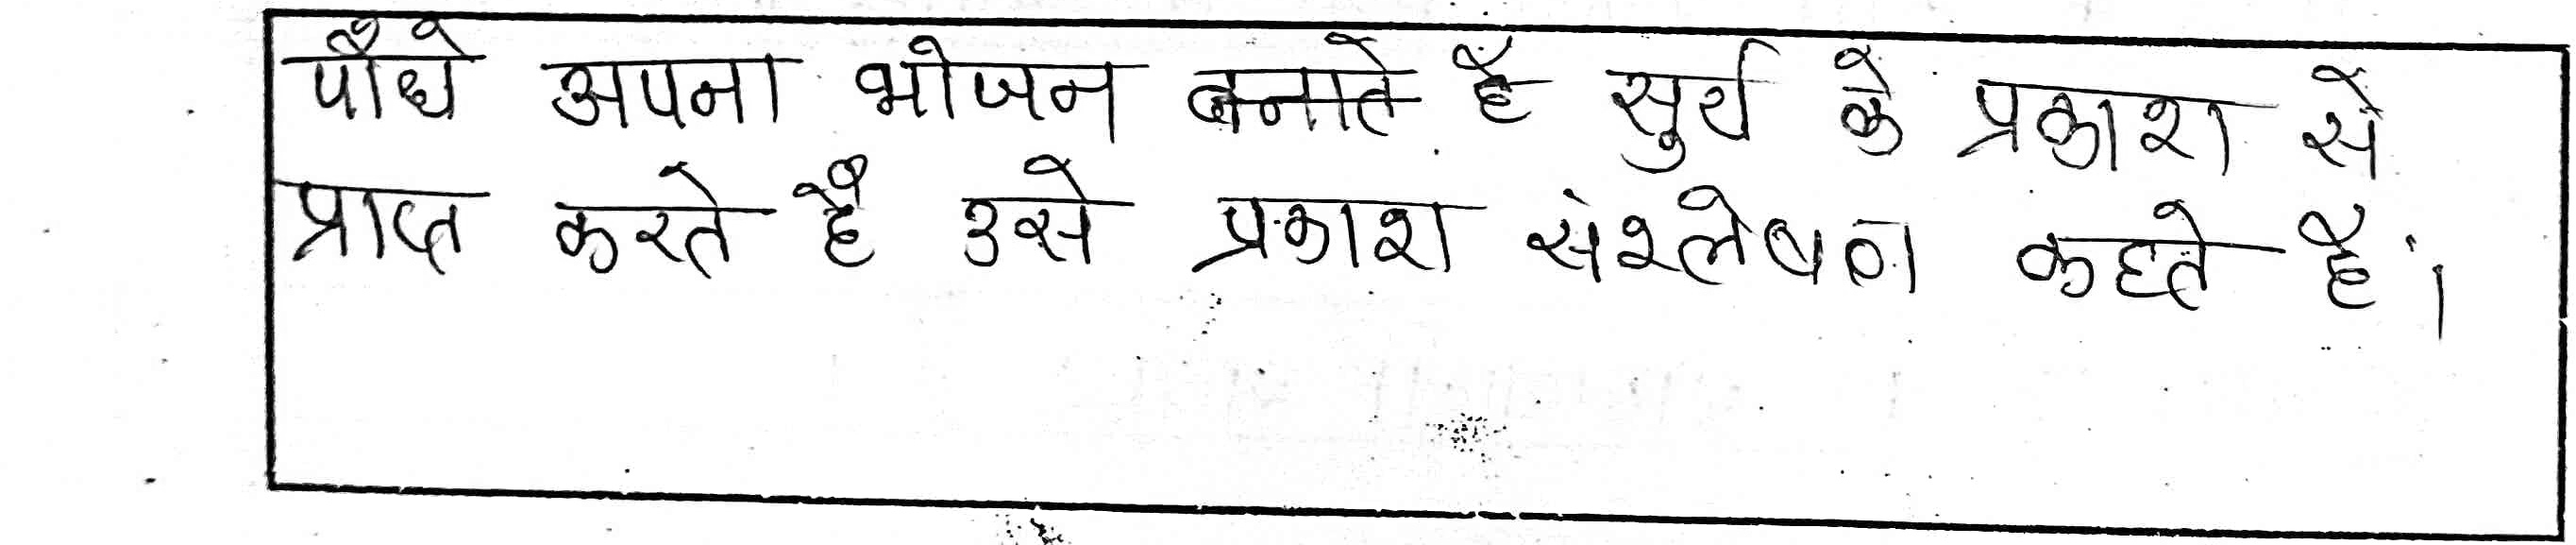 पौधे अपना भोजन बनाते है सुर्य के प्रकाश से
प्राप्त करते है उसे प्रकाश संश्लेषण कहते है।